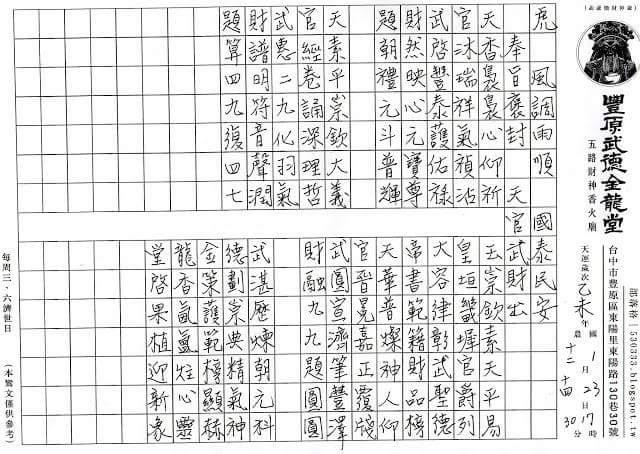 (求籤機財神爺)
豐原武德金龍堂
五路財神香火廟
部落格 | 530333.blogspot.tw
台中市豐原區東陽里東陽路130巷30號
天運歲次乙未年 國 1月23日17時
農 十二 十四 30分
虎風調雨順 國泰民安
奉旨褒封 天官武財出
天香裊裊心仰祈
官沐瑞祥氣禎沾
武啓豐泰護佑祿
財然映心元寶尊
題朝禮元斗普輝
天素平崇欽大義
官經卷誦深理哲
武惠二九化羽氣
財譜明符音聲潤
題算四九復四七
玉崇欽素天平易
皇垣畿墀官爵列
大容律彰武聖德
帝書範籍財品榜
天華普燦神人仰
官晉冕嘉正覆牋
武圓宣濟筆豐澤
財融九九題圓圓
武湛歷煉朝元科
德劃崇典精氣神
金策護範樽顯赫
龍香氤氳炷心靈
堂啓果植迎新象
每周三、六濟世日
(本鸞文僅供參考)